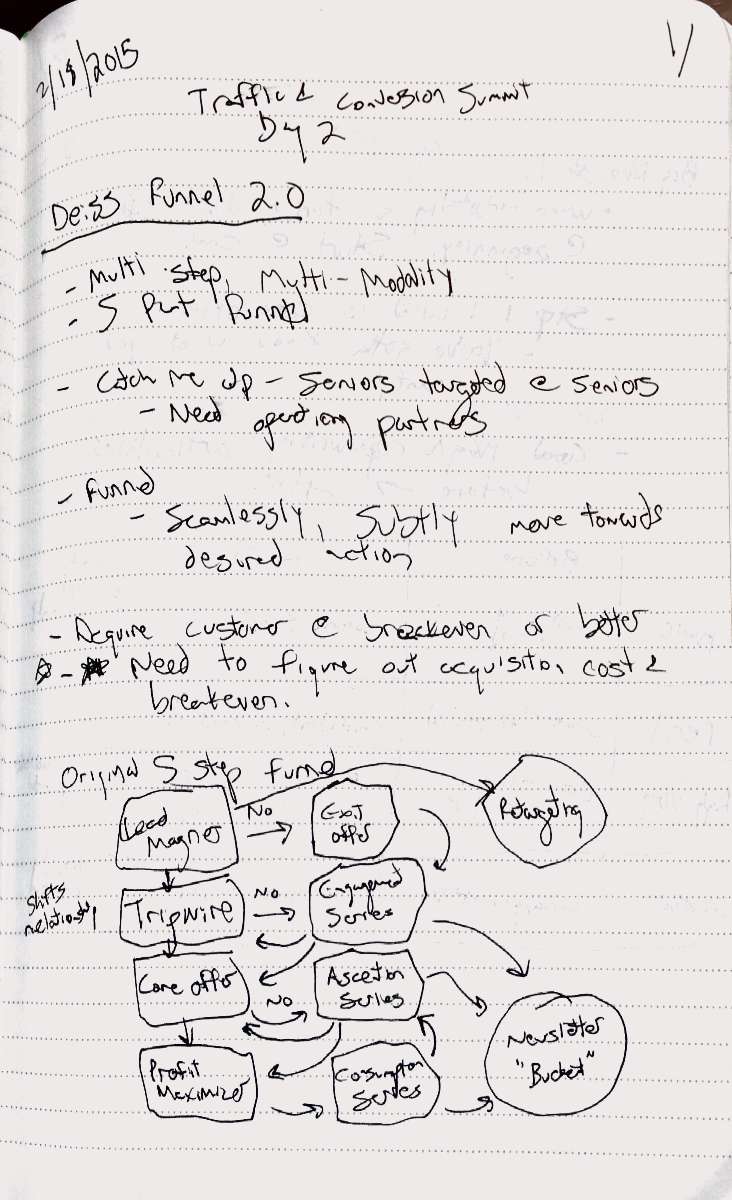 2/18/2015
1/
Traffic & Conversion Summit
Day 2
Deiss Funnel 2.0
- Multi step, Multi-Modality
- 5 Part Funnel
- Catch Me Up - Seniors targeted @ seniors
- Need operating partners
- Funnel
- Seamlessly, Subtly move towards
desired action
- Acquire customer @ breakeven or better
☆ - Need to figure out acquisition cost &
breakeven.
Original 5 step funnel
Lead
Magnet
No
Exit
offer
Retargeting
Shifts
relationship
Tripwire
No
Engagement
Series
Core offer
No
Ascension
Series
Newsletter
"Bucket"
Profit
Maximizer
Consumption
Series